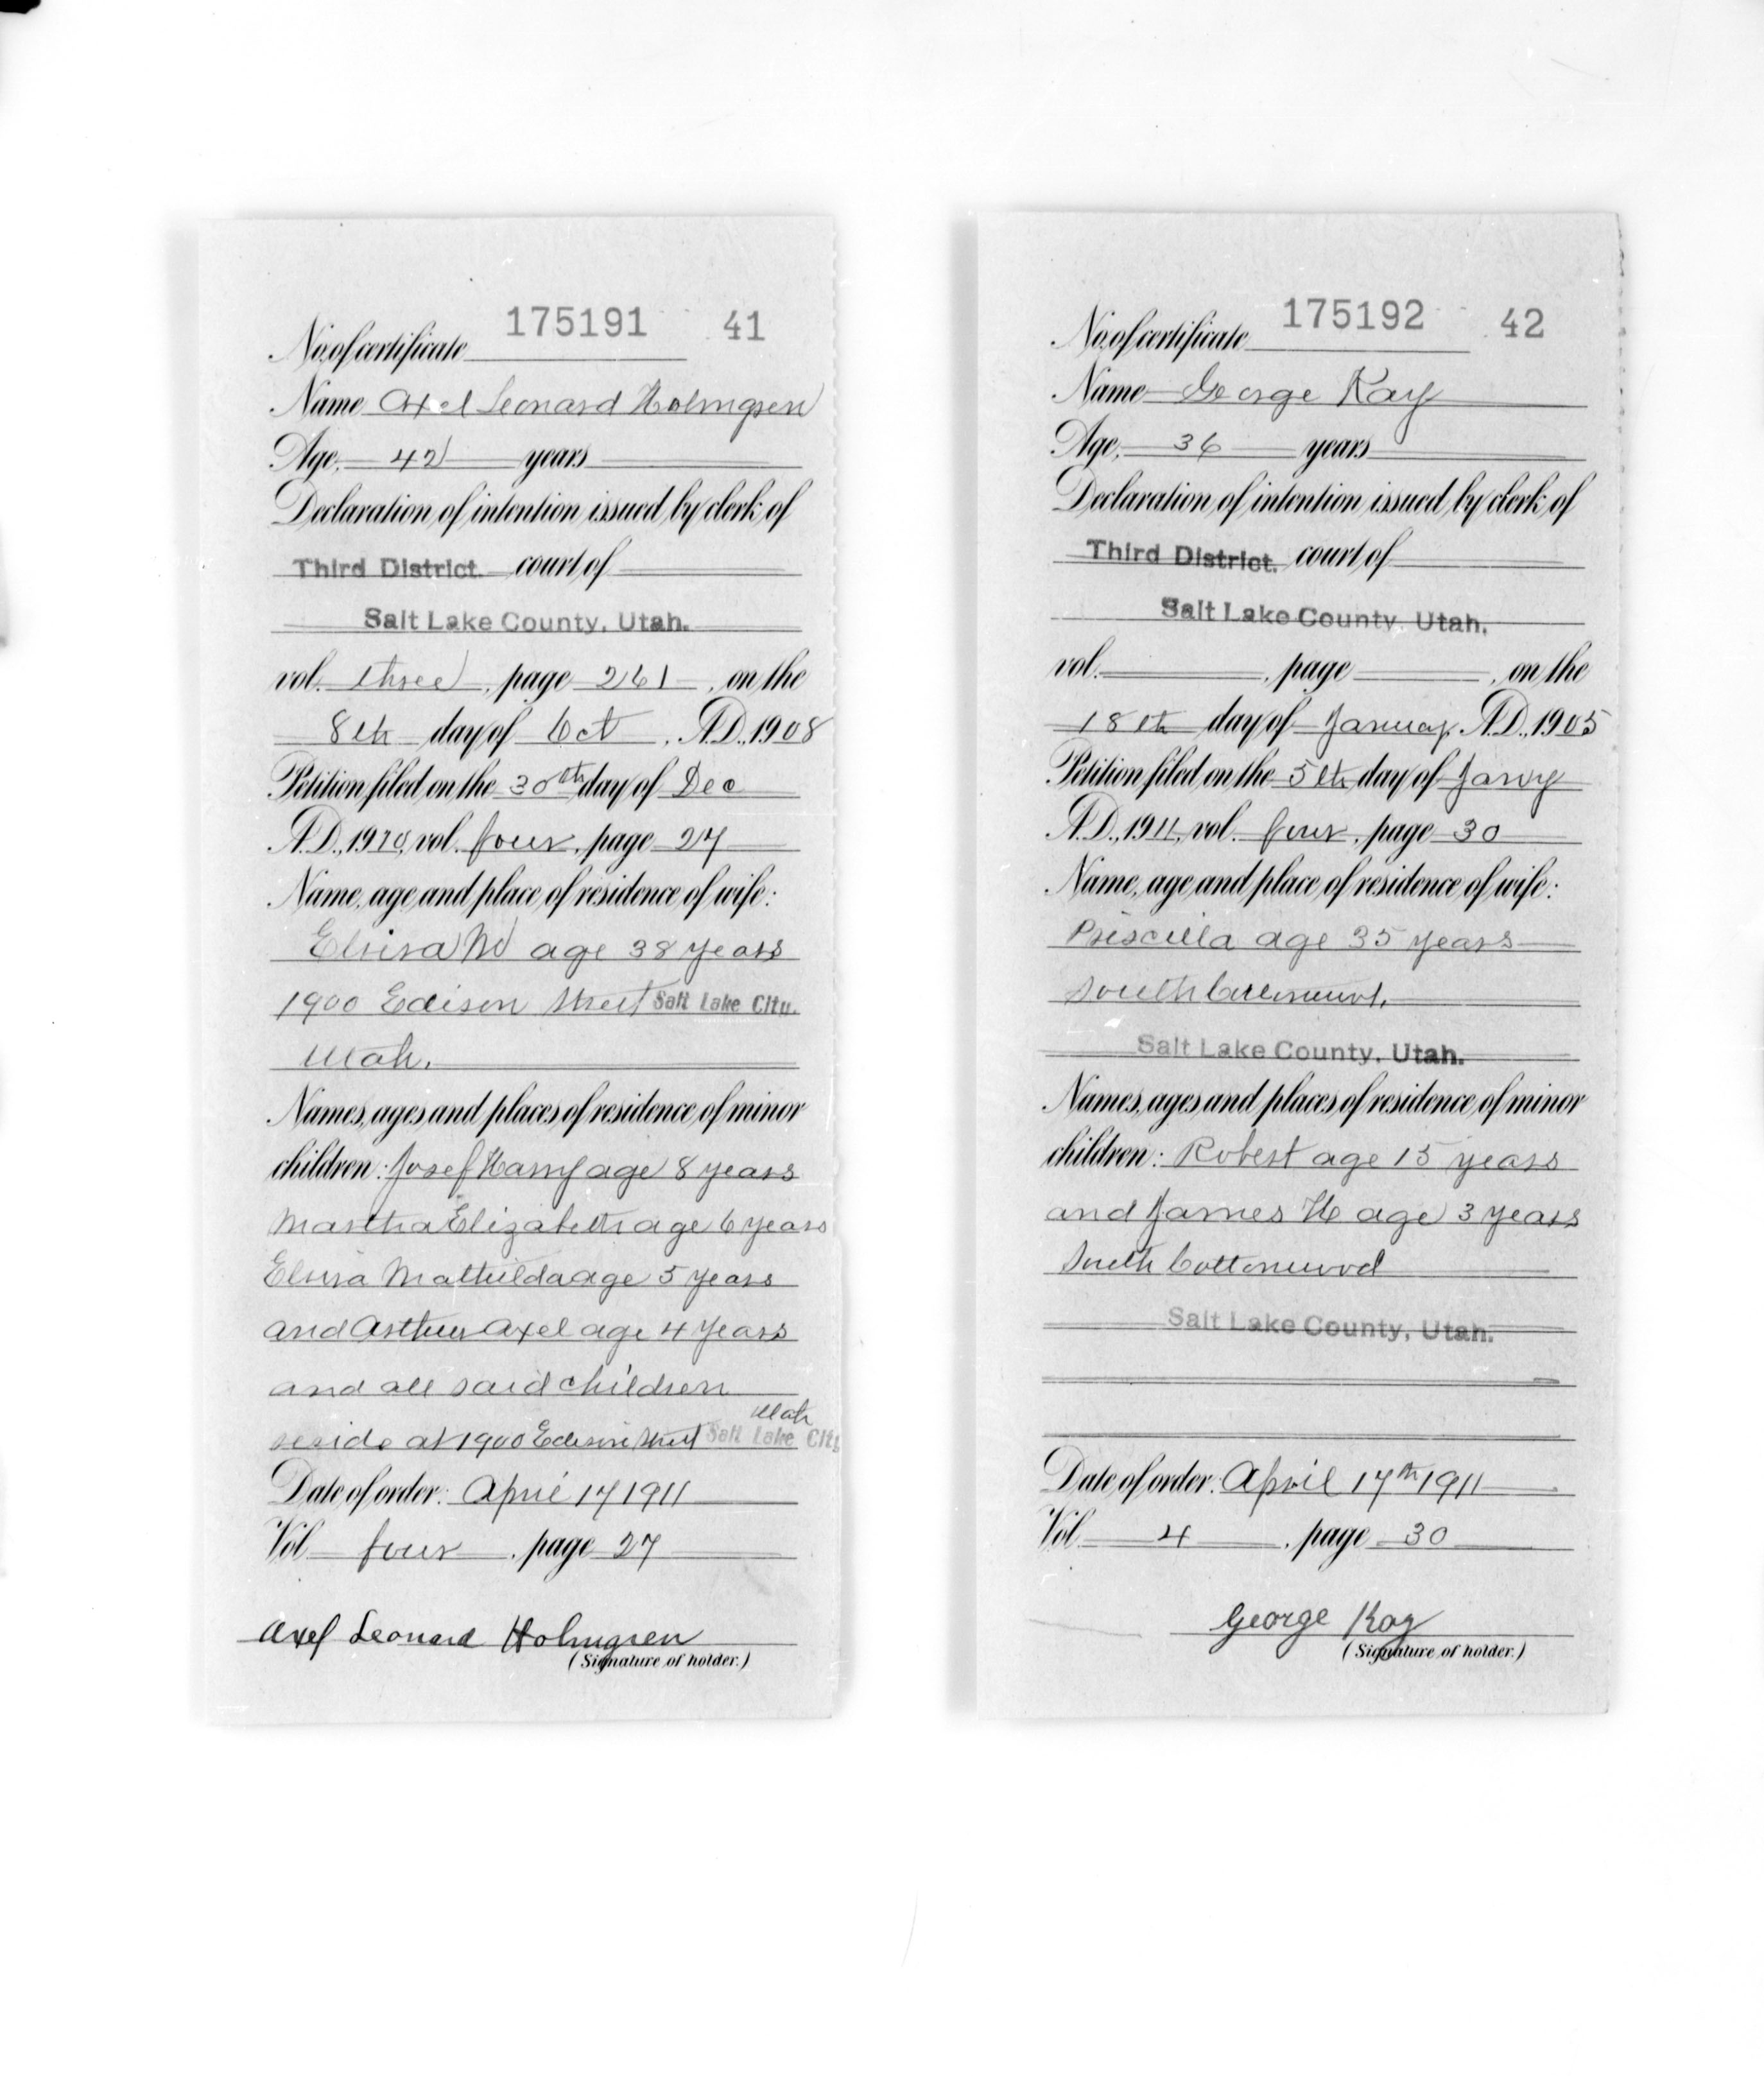 No. of certificate 175191 41
Name Axel Leonard Holmgren
Age, 42 years
Declaration of intention issued by clerk of
Third District. court of
Salt Lake County, Utah.
vol. three, page 261, on the
8th day of Oct, A.D., 1908
Petition filed on the 30th day of Dec
A.D., 1910, vol. four, page 27
Name, age and place of residence of wife:
Elvira M age 38 years
1900 Edison Street Salt Lake City.
Utah.
Names, ages and places of residence of minor
children: Josef Harry age 8 years
Martha Elizabeth age 6 years
Elvira Mathilda age 5 years
and Arthur Axel age 4 years
and all said children
Utah
reside at 1900 Edison Street Salt Lake City
Date of order: April 17 1911
Vol four, page 27
Axel Leonard Holmgren
(Signature of holder.)
No. of certificate 175192 42
Name George Kay
Age, 36 years
Declaration of intention issued by clerk of
Third District. court of
Salt Lake County, Utah.
vol. , page , on the
18th day of January. A.D., 1905
Petition filed on the 5th day of Jany
A.D., 1911, vol. four, page 30
Name, age and place of residence of wife:
Priscilla age 35 years
South Cottonwood,
Salt Lake County, Utah.
Names, ages and places of residence of minor
children: Robert age 15 years
and James H age 3 years
South Cottonwood
Salt Lake County, Utah.
Date of order: April 17th 1911
Vol 4, page 30
George Kay
(Signature of holder.)